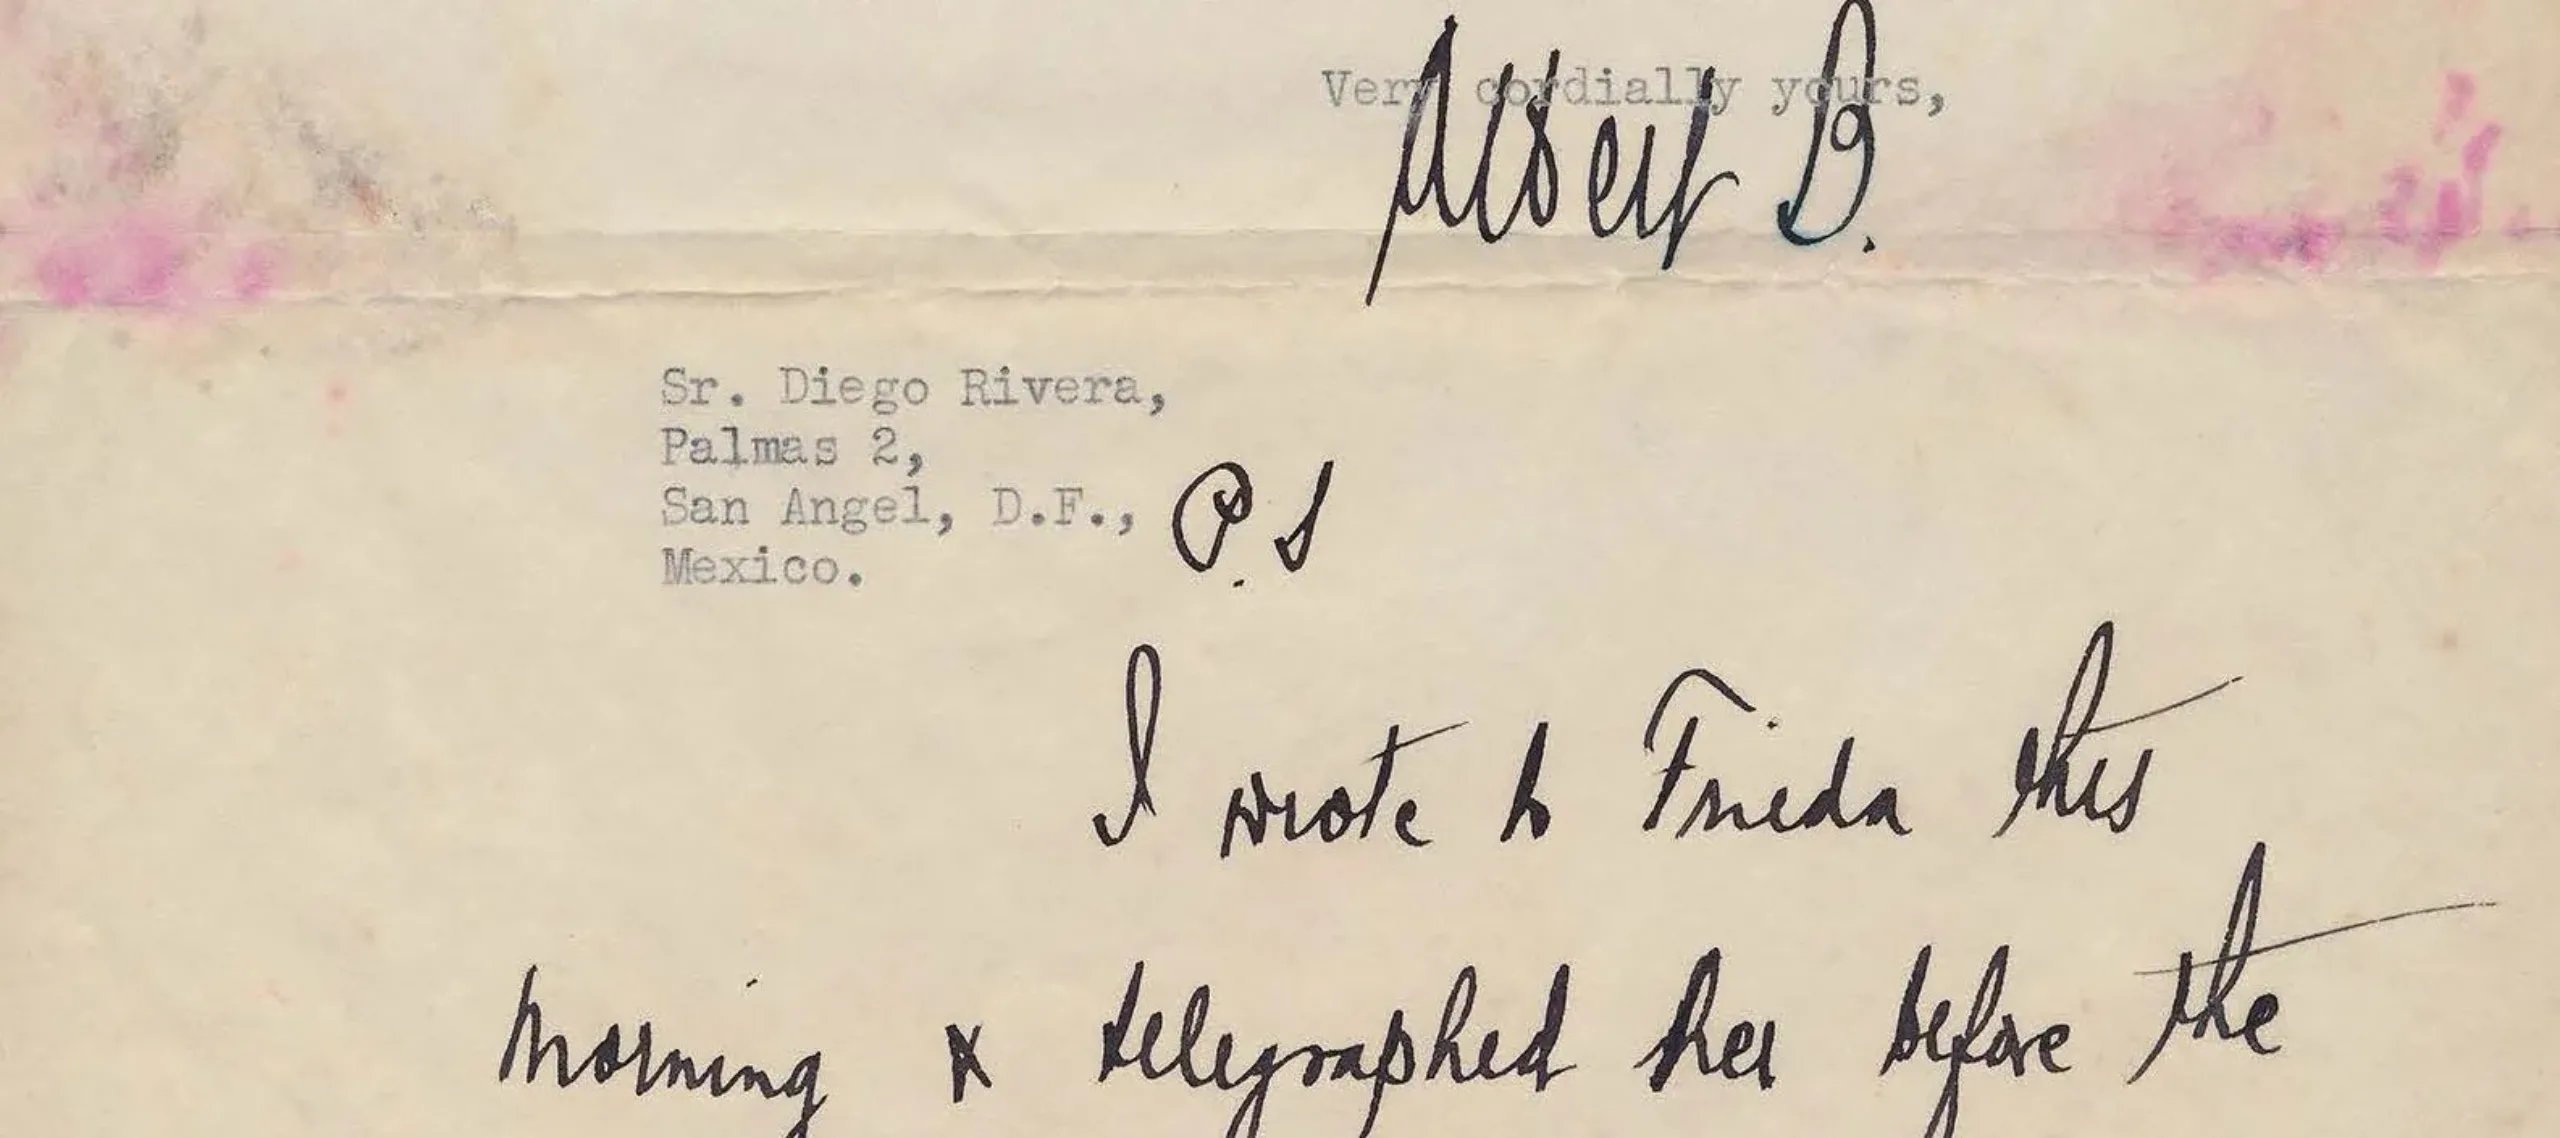 Very cordially yours,
Albert B.
Sr. Diego Rivera,
Palmas 2,
San Angel, D.F.,
Mexico.
P.S
I wrote to Frieda this
morning & telegraphed her before the